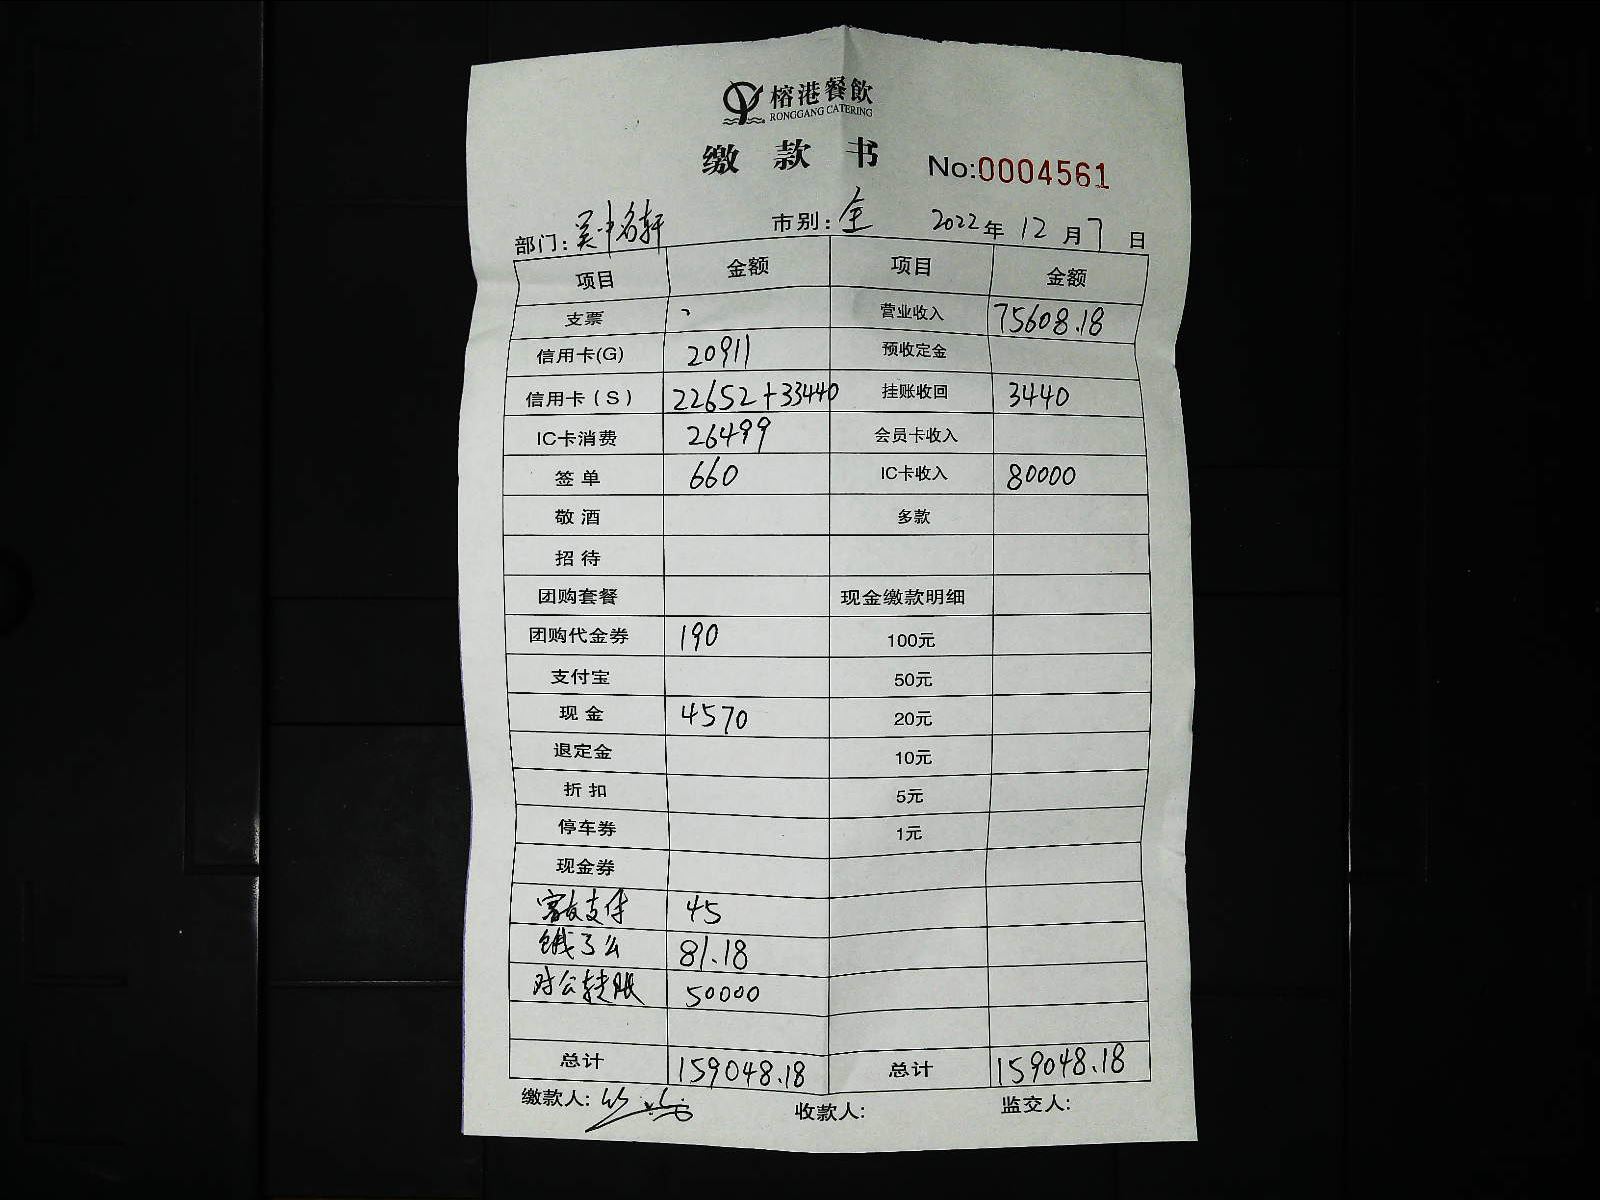 榕港餐飲
RONGGANG CATERING
缴 款 书 No:0004561
部门: 吴中名轩 市别: 全 2022年 12月 7日
项目 金额 项目 金额
支票 、 营业收入 75608.18
信用卡(G) 20911 预收定金
信用卡(S) 22652+33440 挂账收回 3440
IC卡消费 26499 会员卡收入
签单 660 IC卡收入 80000
敬酒 多款
招待
团购套餐 现金缴款明细
团购代金券 190 100元
支付宝 50元
现金 4570 20元
退定金 10元
折扣 5元
停车券 1元
现金券
客友支付 45
饿了么 81.18
对公转账 50000
总计 159048.18 总计 159048.18
缴款人: 收款人: 监交人: